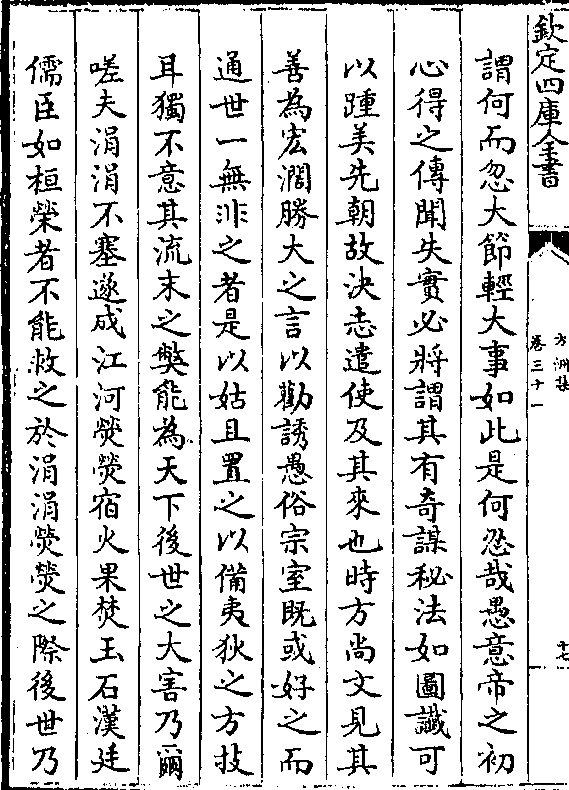 欽定四庫全書
方洲集
卷三十一
十七
謂何而忽大節輕大事如此是何忍哉愚意帝之初
心得之傳聞失實必將謂其有奇謀秘法如圖讖可
以踵美先朝故決志遣使及其來也時方尚文見其
善為宏濶勝大之言以勸誘愚俗宗室既或好之而
通世一無非之者是以姑且置之以備夷狄之方技
耳獨不意其流末之獘能為天下後世之大害乃爾
嗟夫涓涓不塞遂成江河熒熒宿火果焚玉石漢廷
儒臣如桓榮者不能救之於涓涓熒熒之際後世乃